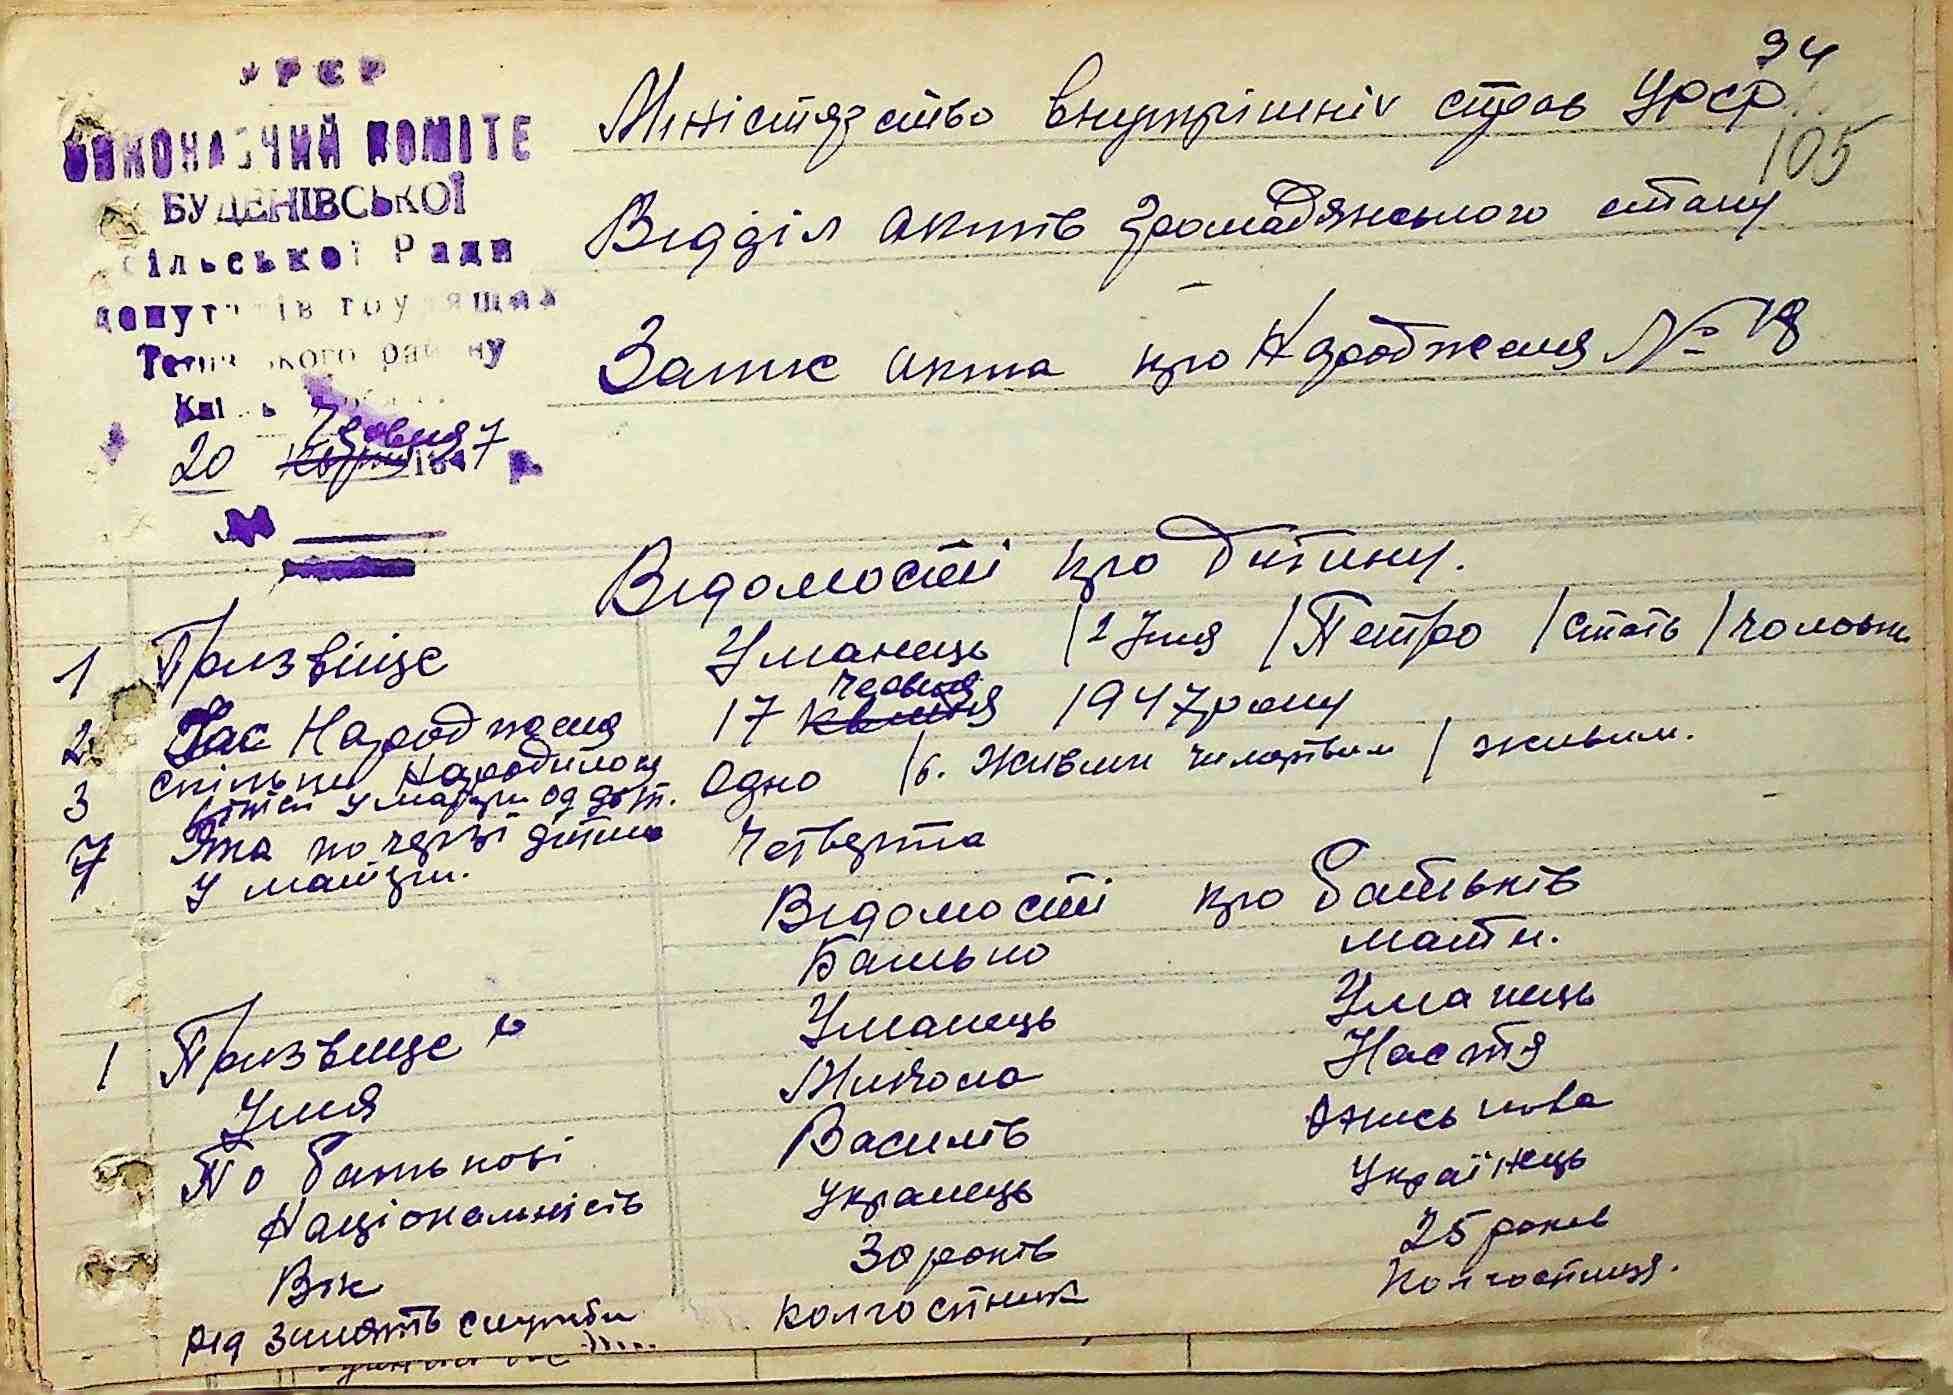 УРСР
ВИКОНАВЧИЙ КОМІТЕ
БУДЕНІВСЬКОЇ
сільської Ради
депутатів трудящих
ського району
20 Червня 1947
94
105
Міністерство внутрішніх справ УРСР
Відділ актів громадянського стану
Запис акта про Народження № 18
Відомості про дитину.
1 Прізвіще Уманець / 2 Імя / Петро / стать / чоловіч
2 Час Народження 17 квітня червня 1947 року
3 скільки Народилося дітей у матері Одно / 6. Живим чи мертвим / живим.
7 Яка по черзі дитина у матери. Четверта
Відомості про батьків
Батько мати.
1 Прізвище Уманець Уманець
Імя Микола Настя
По батькові Василів
Національність Українець Українець
Вік 30 років 25 років
Рід занять служби колгоспник колгоспниця.